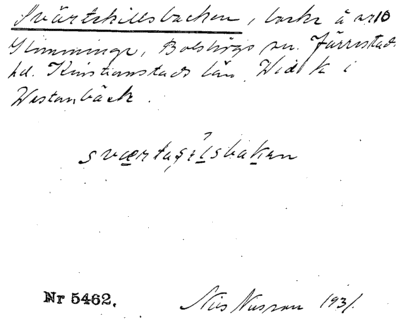 Svärtskillsbacken, backe å nr 10
Glimminge, Bolshögs sn. Järrestads
hd. Kristianstads län. Vid k i
Westanbäck.
sværtaʂɛlsbakən
Nr 5462.
Nils Nilsson 1931.